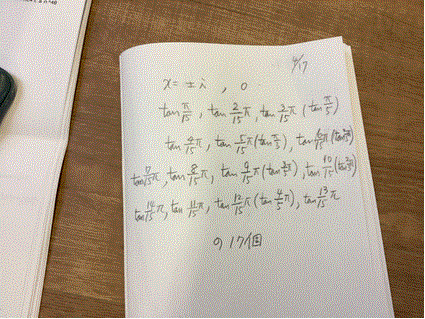 4/17
x = ±i , 0
tan π/15 , tan 2/15 π , tan 2/15 π (tan π/5)
tan 4/15 π , tan 5/15 π (tan π/3) , tan 6/15 π (tan 2/5 π)
tan 7/15 π , tan 8/15 π , tan 9/15 π (tan 3/5 π) , tan 10/15 (tan 2/3 π)
tan 14/15 π , tan 11/15 π , tan 12/15 π (tan 4/5 π) , tan 13/15 π
の 17個